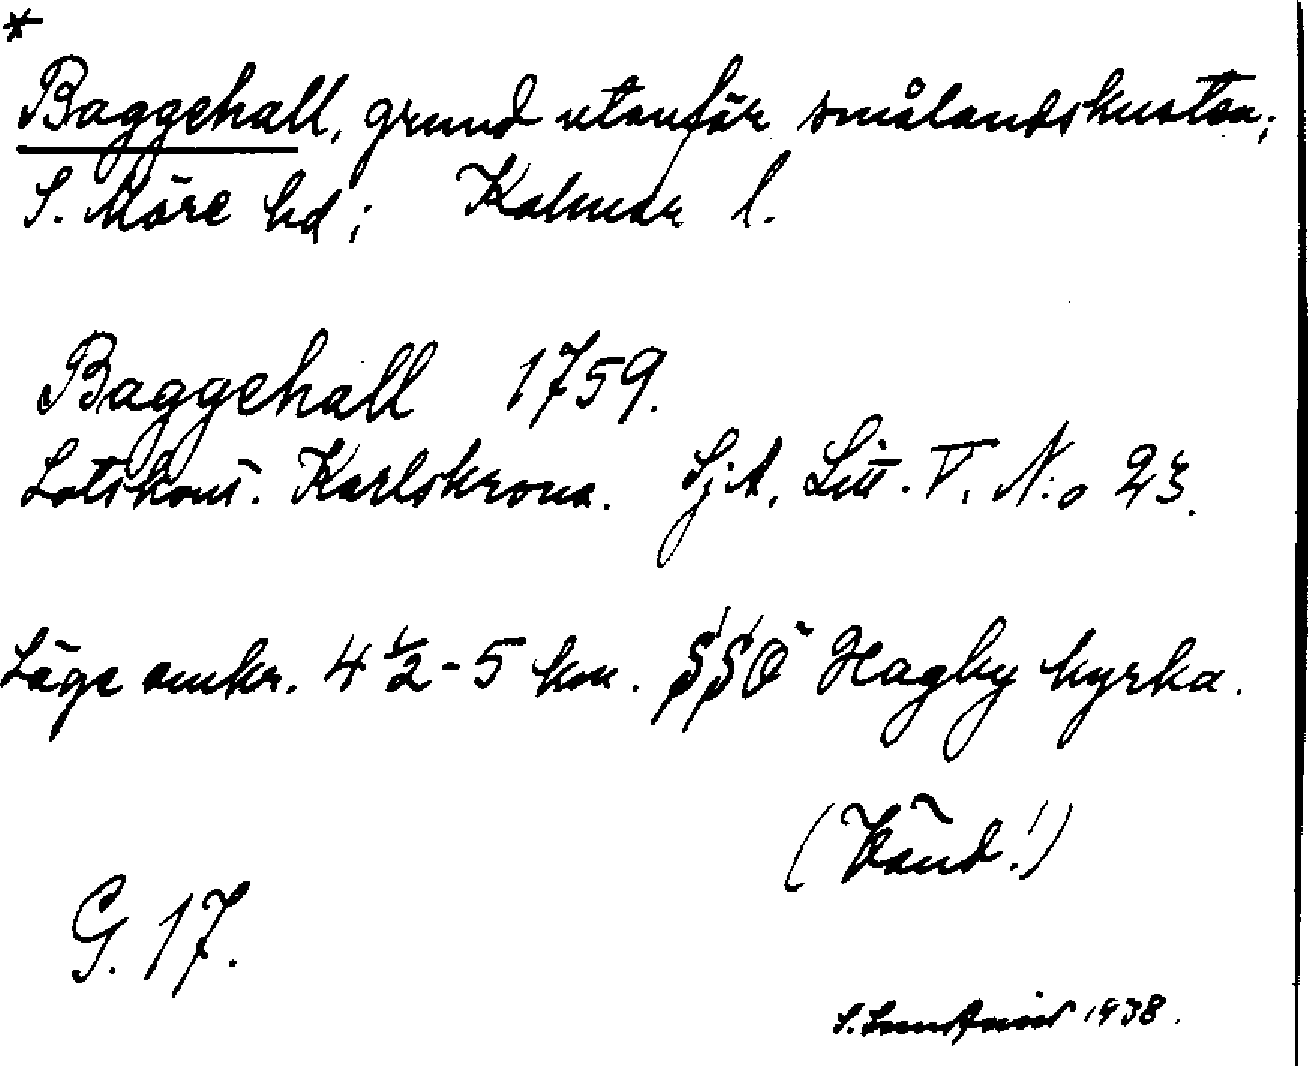 *
Baggehall, grund utanför smålandskusten;
S. Möre hd; Kalmar l.
Baggehall 1759.
Lotskont. Karlskrona. SjA, Litt. V. N:o 23.
Läge omkr. 4 ½ - 5 km. SSÖ Hagby kyrka.
(Vänd!)
G. 17.
S. 1938.